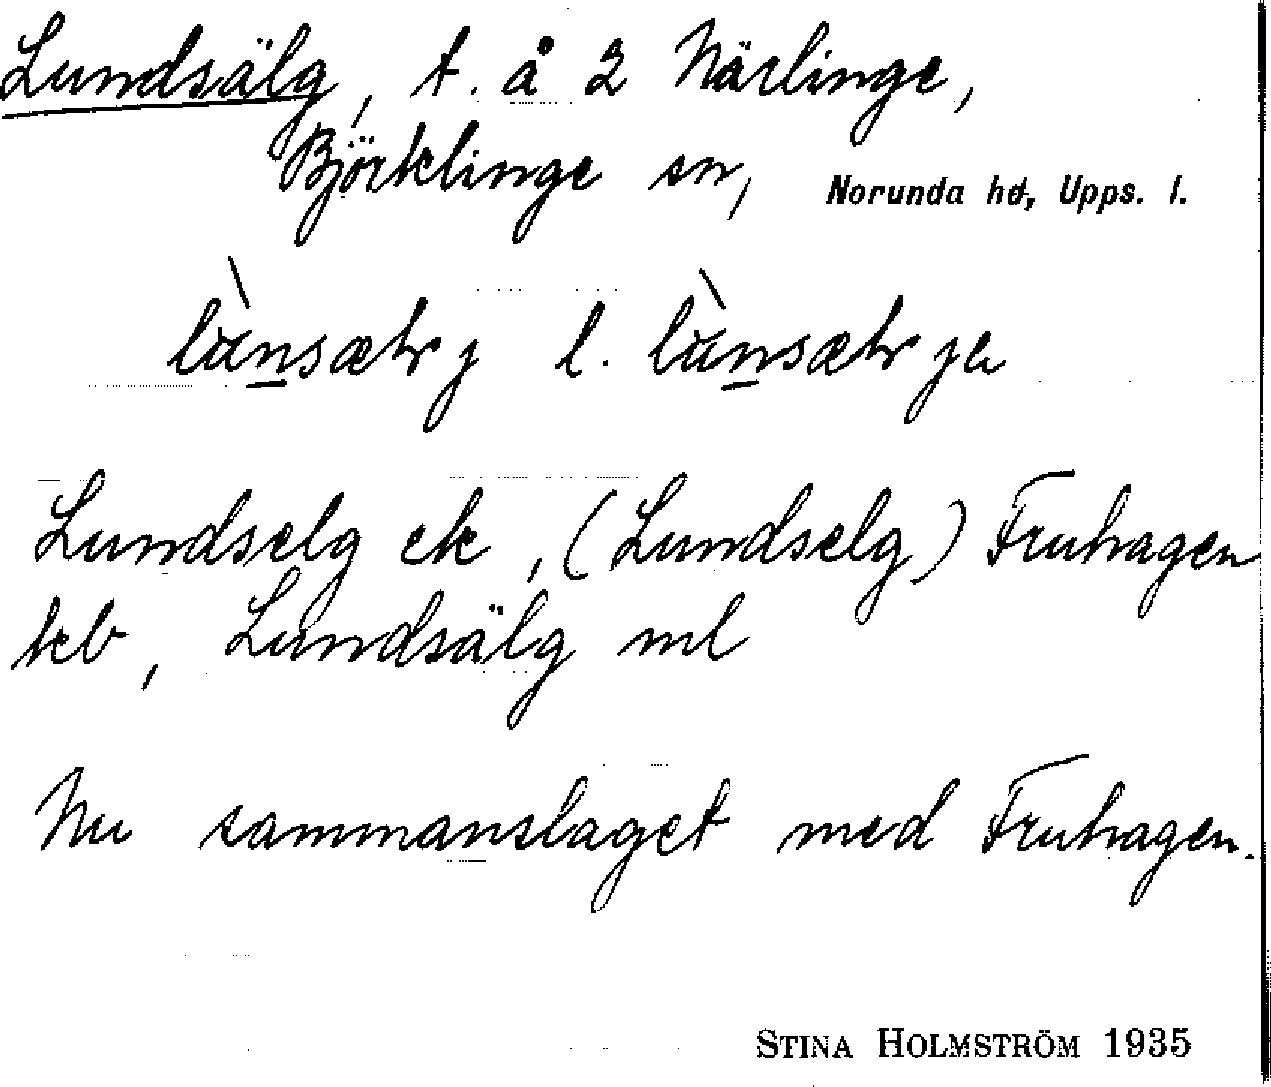 Lundsälg, t. å 2 Närlinge,
Björklinge sn, Norunda hd, Upps. l.
l. 
Lundselg ek, (Lundselg) Fruhagen
kb, Lundsälg ml
Nu sammanslaget med Fruhagen.
STINA HOLMSTRÖM 1935